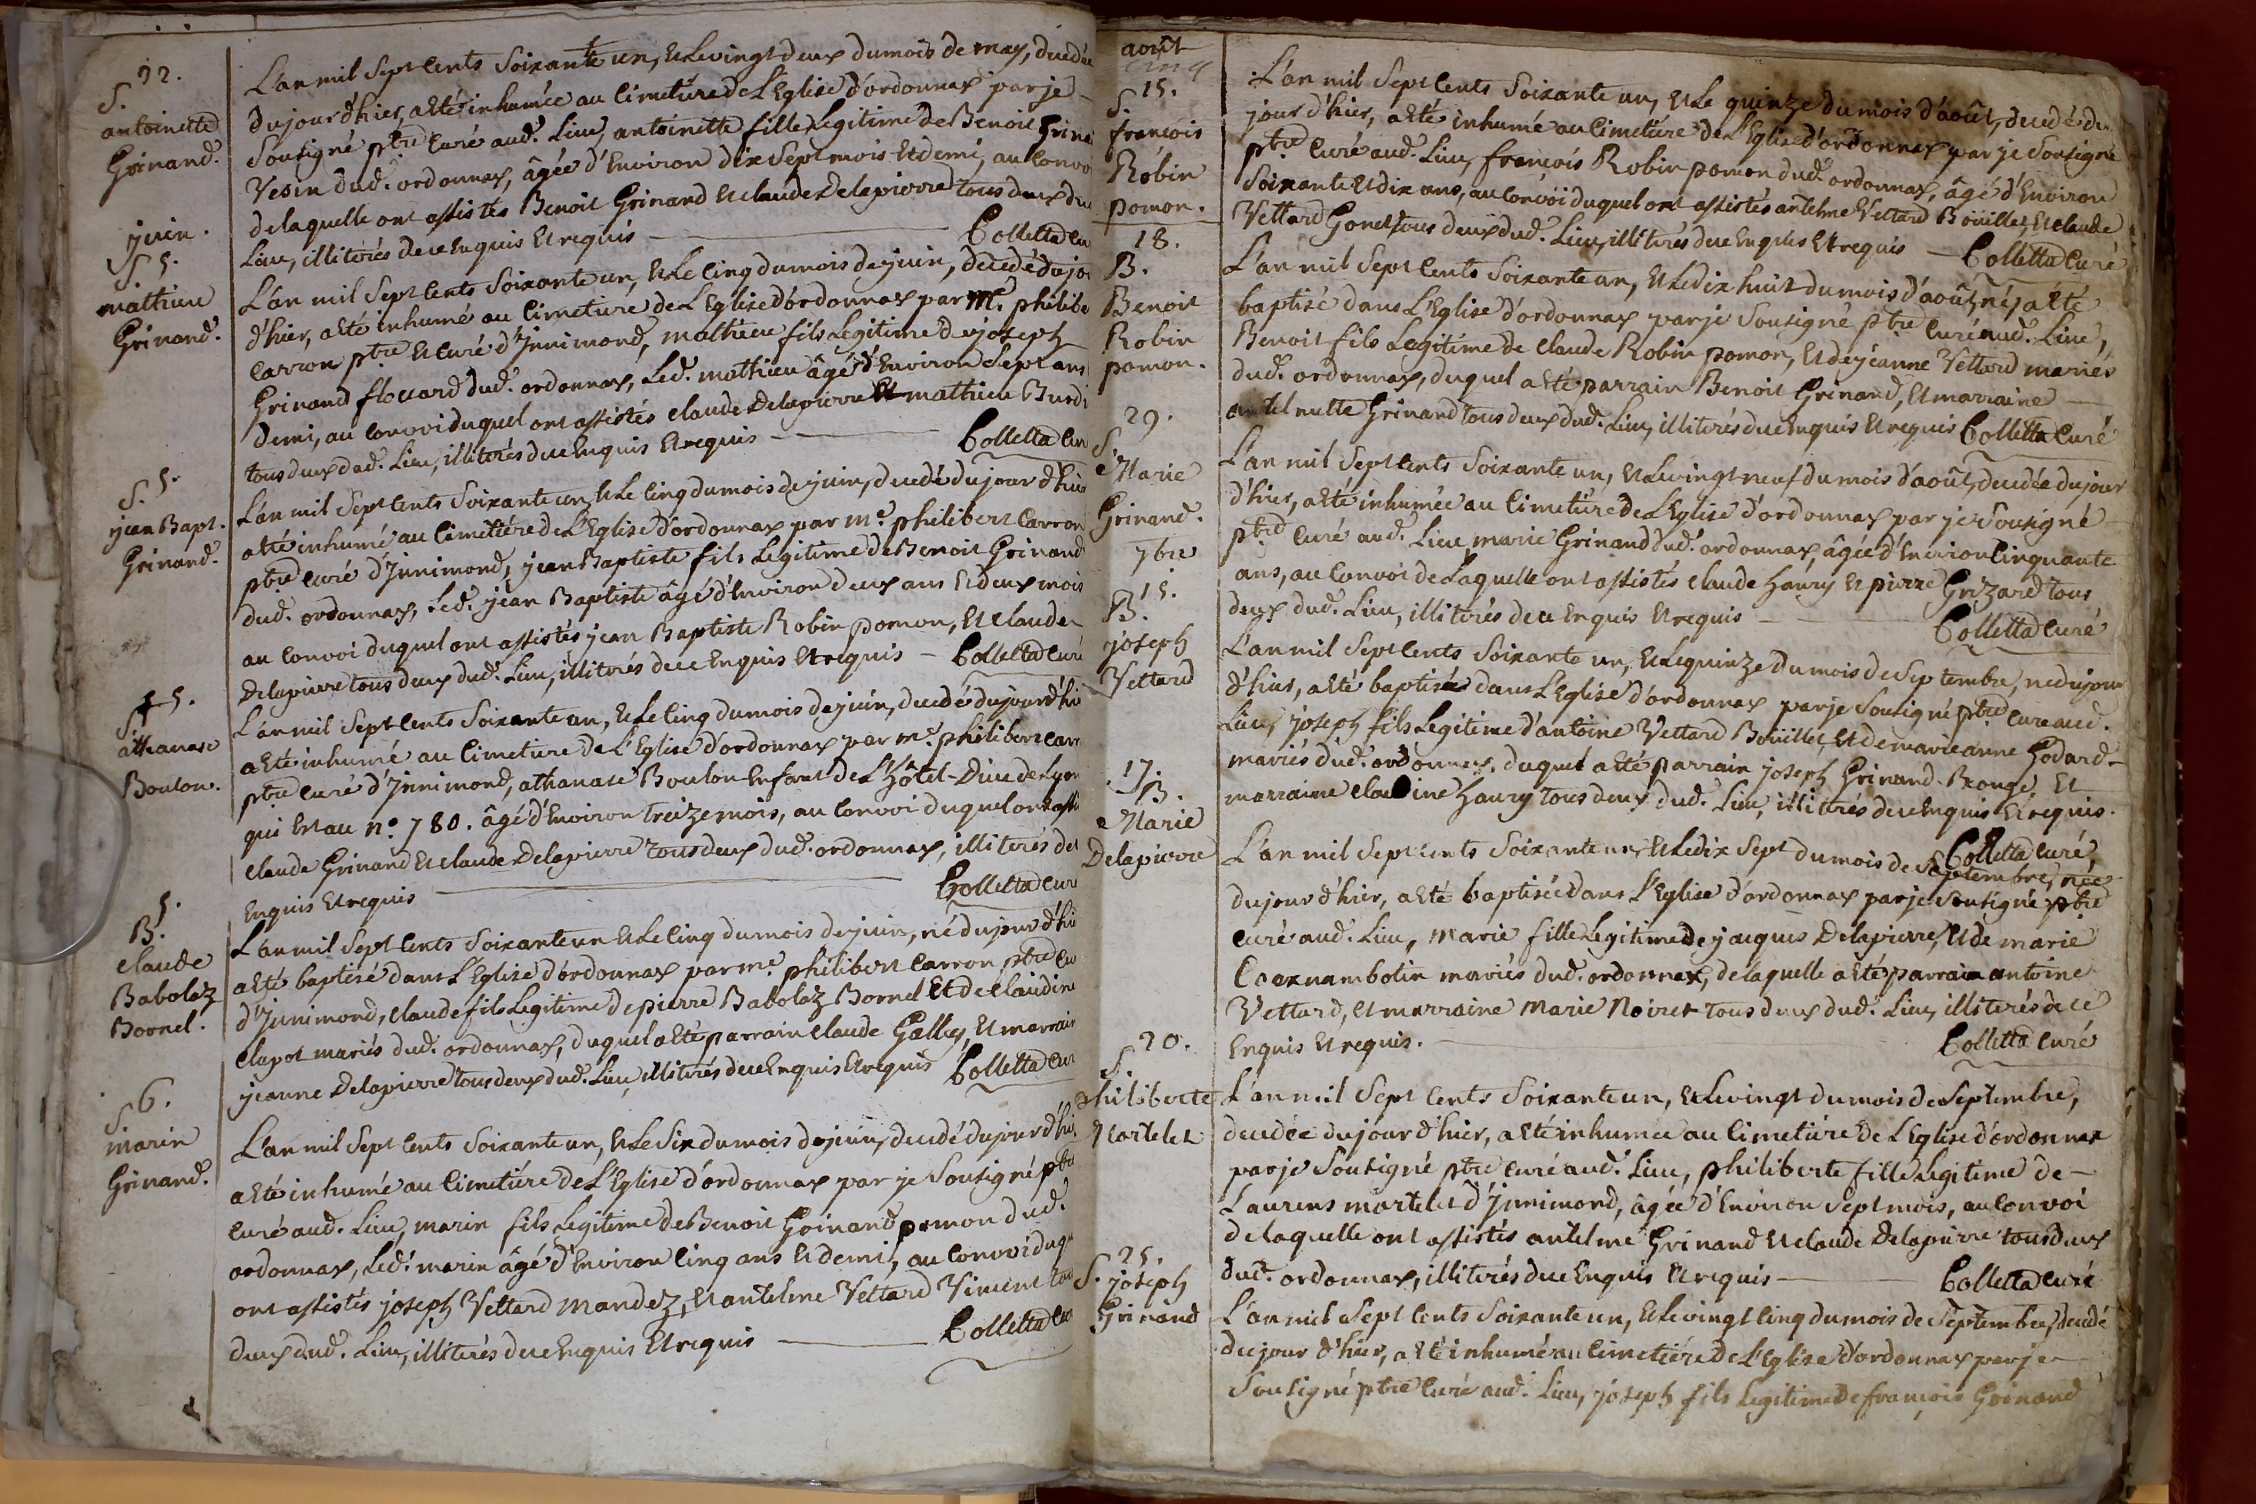 22.
S.
antoinette
Grinand.
L'an mil Sept Cents Soixante un, Et Le vingt deux du mois de may, decedée
du jour d'hier, a Eté inhumée au Cimetiére de L'Eglise d'ordonnax par je
Sousigné ptre Curé aud. Lieu, antoinette fille Legitime de Benoit Grinand
Vesin dud. ordonnax, âgée d'Environ dix Sept mois Et demi, au Convoi
de laquelle ont assistés Benoit Grinand Et claude Delapierre tous deux dud.
Lieu, illiterés de ce Enquis Et requis Colletta Curé
juin.
S. 5.
mathieu
Grinand.
L'an mil Sept Cents Soixante un, Et Le cinq du mois de juin, decedé du jour
d'hier, a Eté inhumé au Cimetiére de L'Eglise d'ordonnax par Mre. philibert
Carron ptre Et Curé d'Jnnimond, mathieu fils Legitime de joseph
Grinand flouard dud. ordonnax, Led. mathieu âgé d'Environ Sept ans
demi, au Convoi duquel ont assistés claude Delapierre Et mathieu
tous deux dud. Lieu, illiterés de ce Enquis Et requis Colletta Curé
S. 5.
jean Bapt.
Grinand.
L'an mil Sept Cents Soixante un, Et Le cinq du mois de juin, decedé du jour d'hier
a Eté inhumé au Cimetiére de L'Eglise d'ordonnax par mre. philibert Carron
ptre Curé d'Jnnimond, jean Baptiste fils Legitime de Benoit Grinand
dud. ordonnax, Led. jean Baptiste âgé d'Environ deux ans Et deux mois
au Convoi duquel ont assistés jean Baptiste Robin pomon, Et claude
Delapierre tous deux dud. Lieu, illiterés de ce Enquis Et requis Colletta Curé
5.
S.
athanase
Boulon.
L'an mil Sept Cents Soixante un, Et Le cinq du mois de juin, decedé du jour d'hier
a Eté inhumé au Cimetiére de L'Eglise d'ordonnax par mre. philibert Carron
ptre Curé d'Jnnimond, athanase Boulon Enfant de L'Hôtel-Dieu de Lyon
qui Et au no. 780. âgé d'Environ treize mois, au Convoi duquel ont assistés
claude Grinand Et claude Delapierre tous deux dud. ordonnax, illiterés de ce
Enquis Et requis Colletta Curé
5.
B.
claude
Babolaz
Bornel.
L'an mil Sept Cents Soixante un Et Le cinq du mois de juin, né du jour d'hier
a Eté baptisé dans L'Eglise d'ordonnax par mre. philibert Carron ptre Curé
d'Jnnimond, claude fils Legitime de pierre Babolaz Bornel Et de claudine
clapot mariés dud. ordonnax, duquel a Eté parrain claude Gallay, Et marraine
jeanne Delapierre tous deux dud. Lieu, illiterés de ce Enquis Et requis Colletta Curé
6.
S.
marin
Grinand.
L'an mil Sept Cents Soixante un, Et Le Six du mois de juin, decedé du jour d'hier
a Eté inhumé au Cimetiére de L'Eglise d'ordonnax par je Sousigné ptre
Curé aud. Lieu, marin fils Legitime de Benoit Grinand pomon dud.
ordonnax, Led. marin âgé d'Environ cinq ans Et demi, au Convoi duquel
ont assistés joseph Vettard Mandez, Et antelme Vettard Vincent tous
deux dud. Lieu, illiterés de ce Enquis Et requis Colletta Curé
août
cinq
15.
S.
françois
Robin
pomon.
L'an mil Sept Cents Soixante un, Et Le quinze du mois d'août, decedé du
jour d'hier, a Eté inhumé au Cimetiére de L'Eglise d'ordonnax par je Sousigné
ptre Curé aud. Lieu, françois Robin pomon dud. ordonnax, âgé d'Environ
Soixante Et dix ans, au Convoi duquel ont assistés antelme Vettard Bouillet, Et claude
Vettard Gonet tous deux dud. Lieu, illiterés de ce Enquis Et requis Colletta Curé
18.
B.
Benoit
Robin
pomon.
L'an mil Sept Cents Soixante un, Et Le dix huit du mois d'août, né, a Eté
baptisé dans L'Eglise d'ordonnax par je Sousigné ptre Curé aud. Lieu,
Benoit fils Legitime de claude Robin pomon, Et de jeanne Vettard mariés
dud. ordonnax, duquel a Eté parrain Benoit Grinand, Et marraine
antelmette Grinand tous deux dud. Lieu, illiterés de ce Enquis Et requis Colletta Curé
29.
S.
Marie
Grinand.
L'an mil Sept Cents Soixante un, Et Le vingt neuf du mois d'août, decedée du jour
d'hier, a Eté inhumée au Cimetiére de L'Eglise d'ordonnax par je Sousigné
ptre Curé aud. Lieu, marie Grinand dud. ordonnax, âgée d'Environ Cinquante
ans, au Convoi de Laquelle ont assistés claude haury Et pierre Grizard tous
deux dud. Lieu, illiterés de ce Enquis Et requis Colletta Curé
7bre
15.
B.
joseph
Vettard
L'an mil Sept Cents Soixante un, Et Le quinze du mois de Septembre, né du jour
d'hier, a Eté baptisé dans L'Eglise d'ordonnax par je Sousigné ptre Curé aud.
Lieu, joseph fils Legitime d'antoine Vettard Bouillet, Et de marie anne Godard
mariés dud. ordonnax, duquel a Eté parrain joseph Grinand Rouge, Et
marraine claudine haury tous deux dud. Lieu, illiterés de ce Enquis Et requis.
Colletta Curé
17.
B.
Marie
Delapierre
L'an mil Sept Cents Soixante un, Et Le dix Sept du mois de Septembre, née
du jour d'hier, a Eté baptisée dans L'Eglise d'ordonnax par je Sousigné ptre
Curé aud. Lieu, Marie fille Legitime de jacques Delapierre, Et de marie
mariés dud. ordonnax, de laquelle a Eté parrain antoine
Vettard, Et marraine Marie Noiret tous deux dud. Lieu, illiterés de ce
Enquis Et requis. Colletta Curé
20.
S.
philiberte
Martelet
L'an mil Sept Cents Soixante un, Et Le vingt du mois de Septembre,
decedée du jour d'hier, a Eté inhumée au Cimetiére de L'Eglise d'ordonnax
par je Sousigné ptre Curé aud. Lieu, philiberte fille Legitime de
Laurens martelet d'Jnnimond, âgée d'Environ Sept mois, au Convoi
de laquelle ont assistés antelme Grinand Et claude Delapierre tous deux
dud. ordonnax, illiterés de ce Enquis Et requis Colletta Curé
25.
S. joseph
Grinand
L'an mil Sept Cents Soixante un, Et Le vingt Cinq du mois de Septembre, decedé
du jour d'hier, a Eté inhumé au Cimetiére de L'Eglise d'ordonnax par je
Sousigné ptre Curé aud. Lieu, joseph fils Legitime de françois Grinand